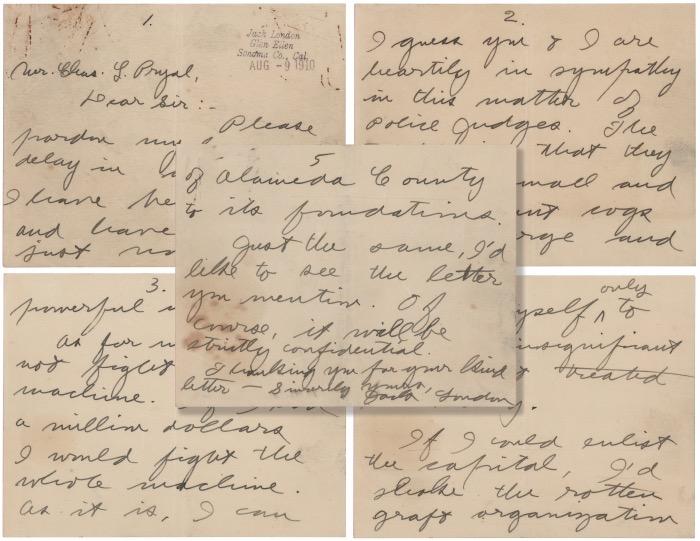 1.
Jack London
Glen Ellen
Sonoma Co., Cal.
AUG - 9 1910
Mr. Chas. L. Pryal,
Dear Sir:-
Please
pardon my
delay in
I have
and have
just
2.
I guess you & I are
heartily in sympathy
in this matter of
Police Judges. The
that they
small and
cogs
and
3.
powerful
As for
not fight
machine.
a million dollars
I would fight the
whole machine.
As it is, I can
only
myself ^ to
insignificant
treated
If I could enlist
the capital, I'd
shake the rotten
graft organization
5
of Alameda County
to its foundations.
Just the same, I'd
like to see the letter
you mention. Of
course, it will be
strictly confidential.
Thanking you for your kind
letter — Sincerely yours,
Jack London